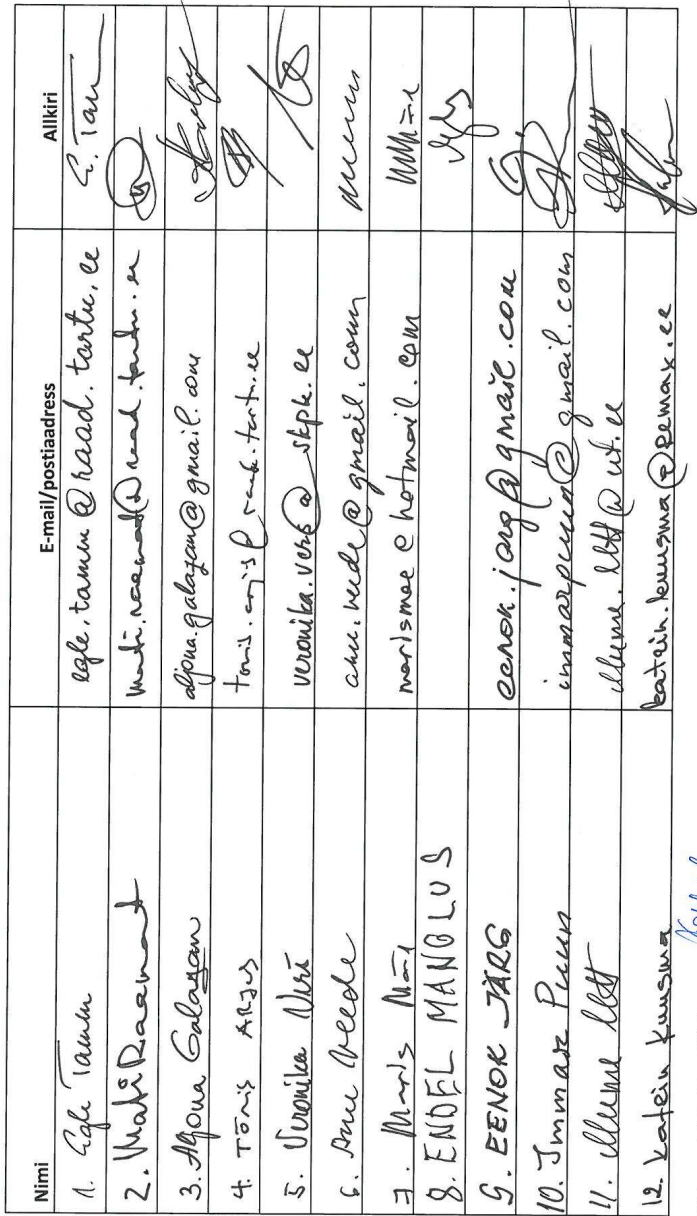 Nimi E-mail/postiaadress Allkiri
1. Egle Tamm egle.tamm@raad.tartu.ee E. Tam
2. Mati Raamat mati.raamat@raad.tartu.ee
3. Aljona Galazan aljona.galazan@gmail.com
4. TÕNIS ARJUS tonis.arjus@raad.tartu.ee
5. Veronika Verš veronika.vers@skpk.ee
6. Anu Veede anu.veede@gmail.com
7. Maris Mäe marismae@hotmail.com
8. ENDEL MANGLUS
9. EENOK JÄRG eenok.jarg@gmail.com
10. Immar Puun immarpuun@gmail.com
11.
12. Katrin Kuusma katrin.kuusma@remax.ee